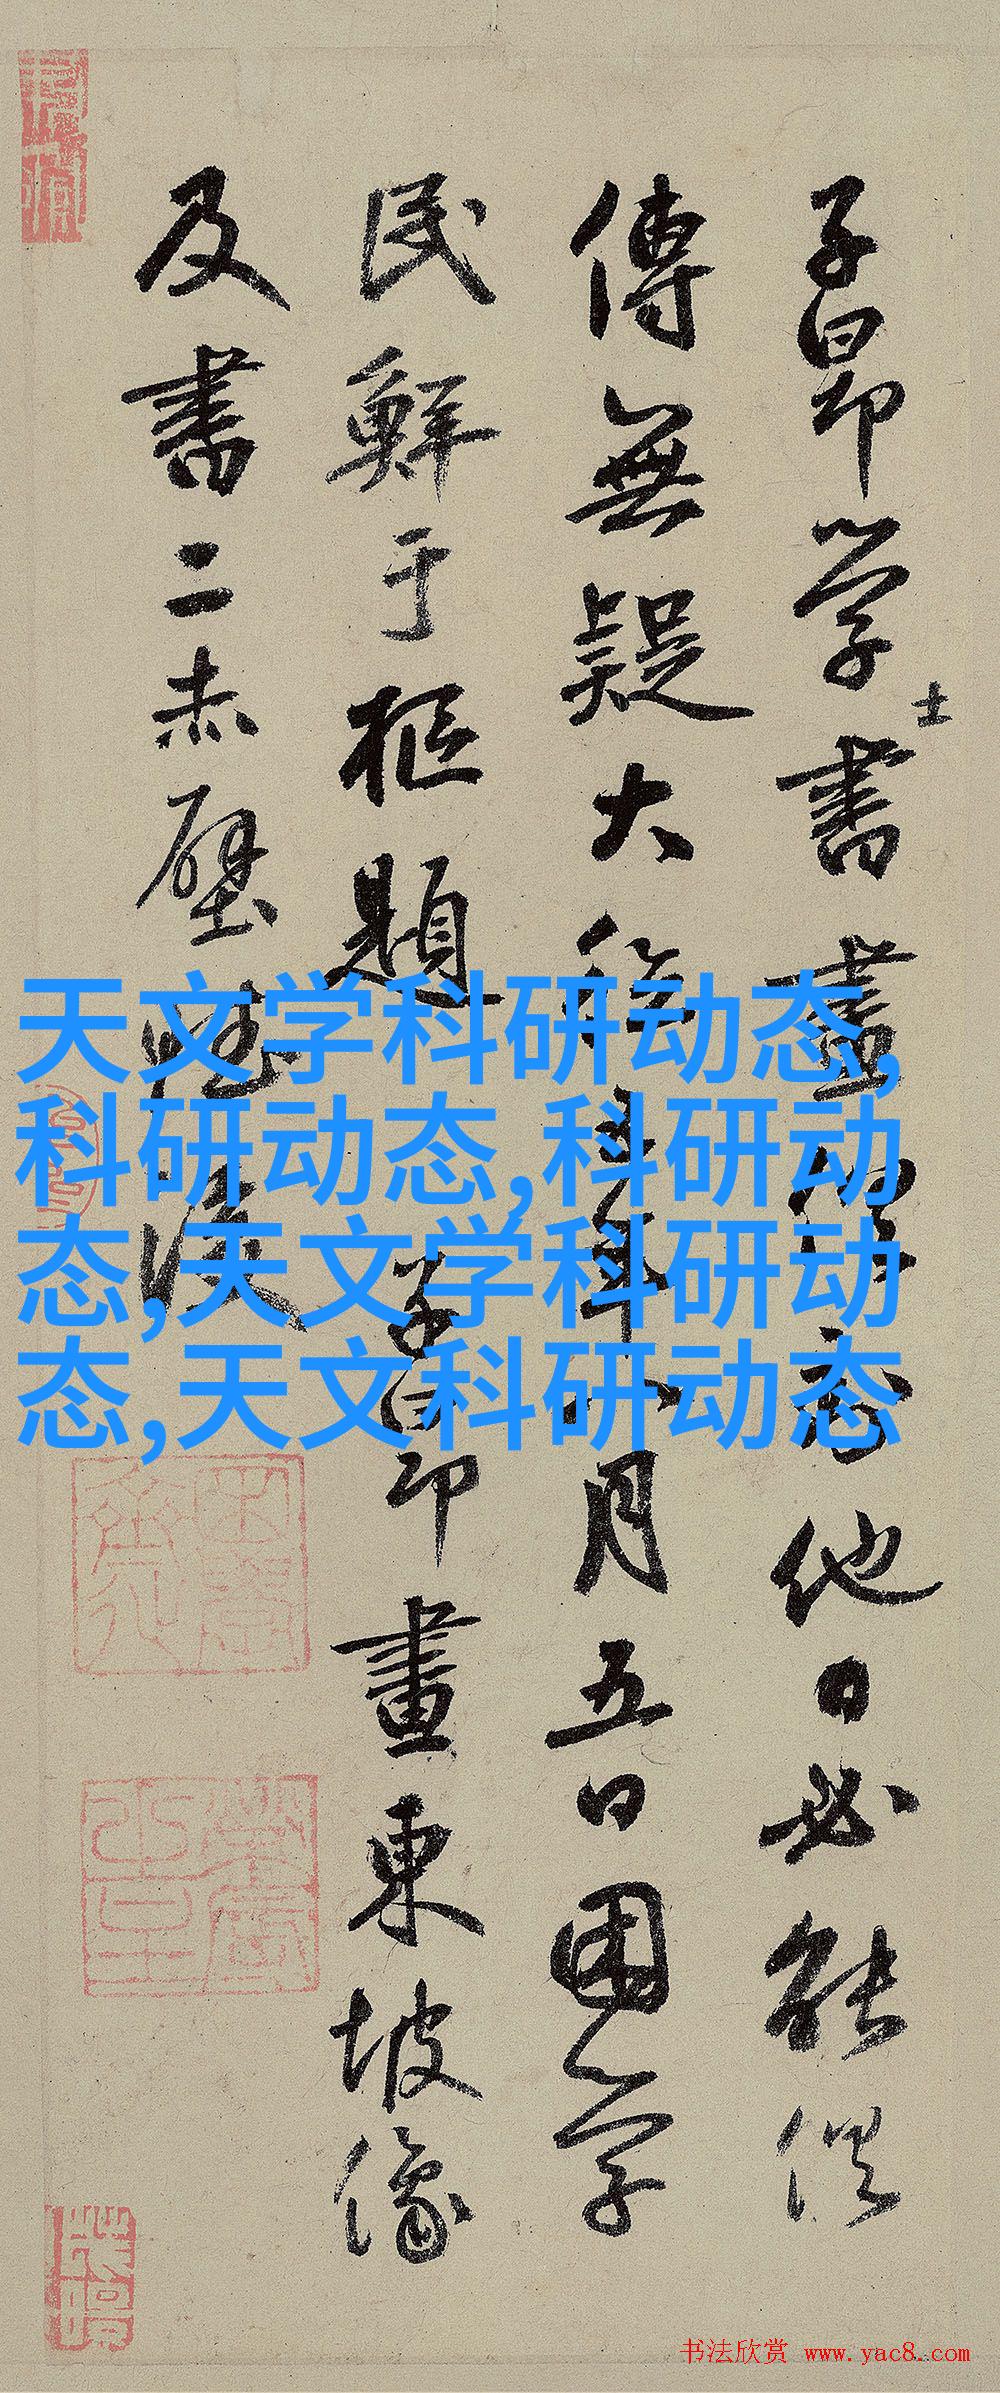 子昂学書士他日必能俱
傳無疑大德五年八月五日困学
民鮮于樞題子昂畫東坡像
及書二赤壁賦後
天文学科研动态,
科研动态,科研动
态,天文学科研动
态,天文科研动态
书法欣赏 www.yac8.com